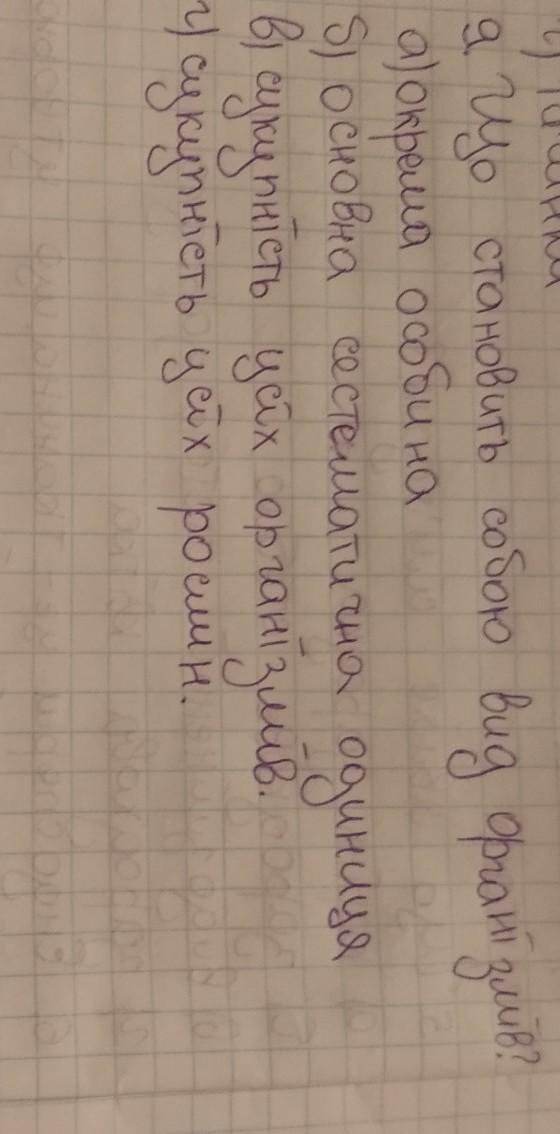 9. Що становить собою вид організмів?
а) окрема особина
б) основна сестематична одиниця
в) сукупність усіх організмів.
г) сукупність усіх рослин.